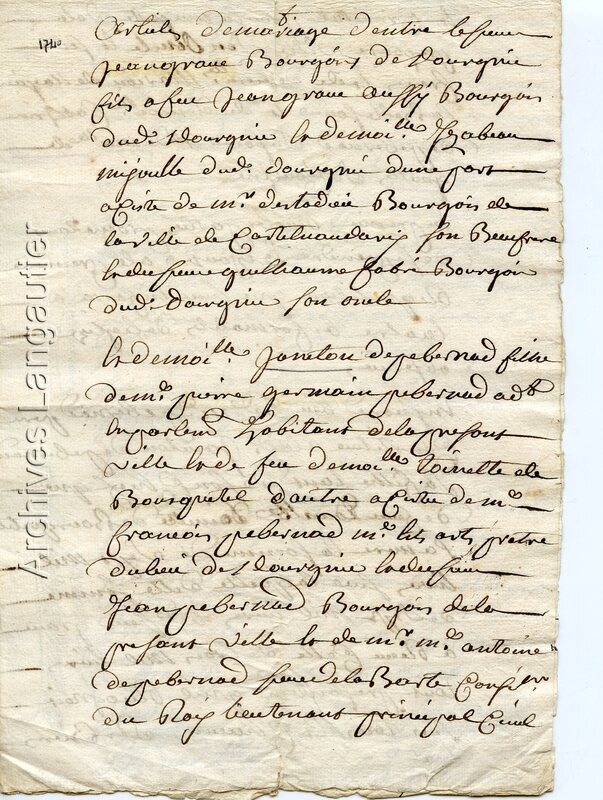 1740
Articles de mariage d'entre le sieur
Jean grave Bourgois de dourgnie
fils a feu Jean grave aussy Bourgois
dud. dourgnie et demoi.lle Izabeau
dud. dourgnie d'une part
de mr. destadieu Bourgois de
la ville de Castelnaudary son Beaufrere
et du sieur guilhaume fabré Bourgois
dud. dourgnie son oncle
et demoi.lle Janeton de pebernad fille
de me. pierre germain pebernad adt
en parlemt habitant de la presant
ville et de feu demoi.lle toinette de
Bousquetel d'autre de me.
francois pebernad me. es arts pretre
du lieu de dourgnie et du sieur
Jean pebernad Bourgois de la
presant ville et de mr. me. antoine
de pebernad sieur de la Barte Conser.
du Roy lieutenant principal Civil
Archives Langautier